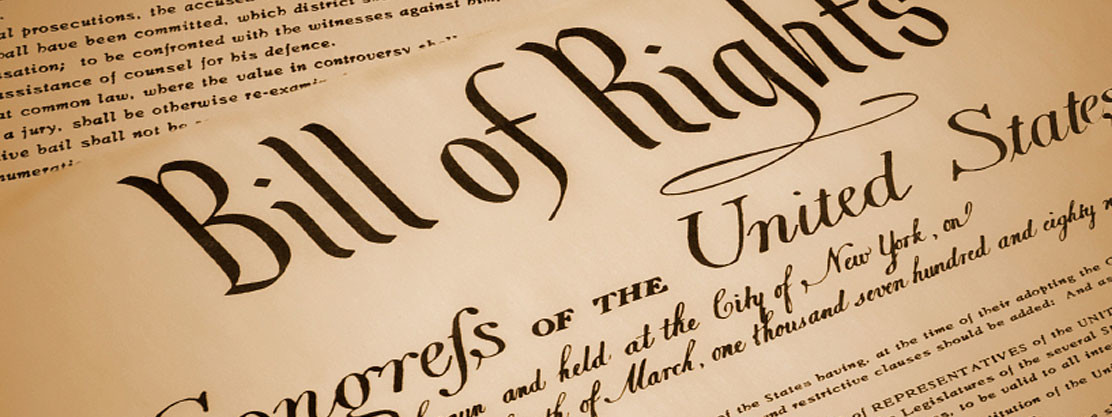 al prosecutions, the accused
all have been committed, which district
sation; to be confronted with the witnesses against him,
ssistance of counsel for his defence.
at common law, where the value in controversy
a jury, shall be otherwise re-exami
ive bail shall not be
numerati
Bill of Rights
Congreſs OF THE United States
gun and held at the City of New York, on
th of March, one thousand seven hundred and eighty n
of the States having, at the time of their adopting the C
nd restrictive clauses should be added: And as
of REPRESENTATIVES of the UNIT
Legislatures of the several S
s, to be valid to all inte
titution of the Uni